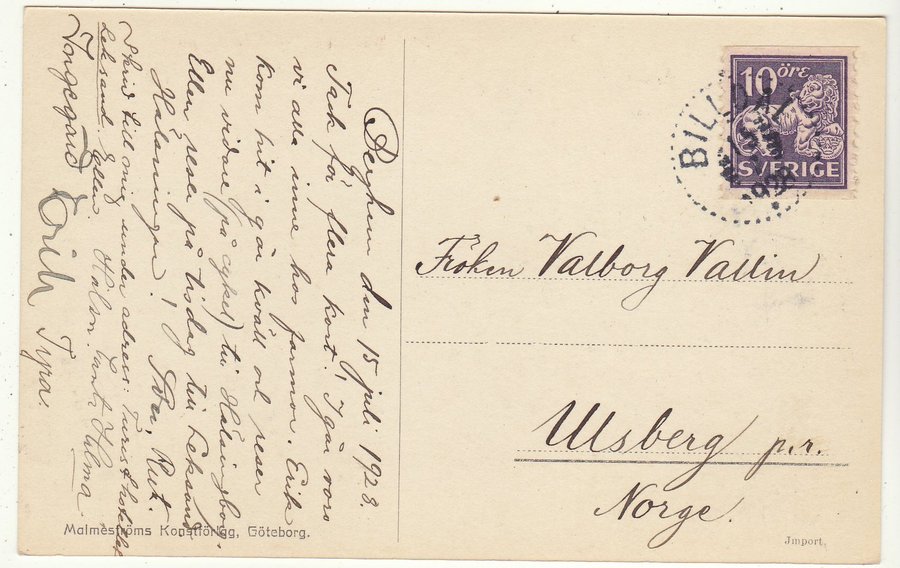 Berghem den 15 juli 1928.
Tack för flera kort! I går voro
vi alla inne hos farmor. Erik
kom hit i går kväll och reser
nu vidare (på cykel) till Hälsingbo.
Ellen reser på tisdag till Leksand
Hälsningar!
Rut.
Skriv till mig under adress: Turisthotellet
Leksand. Ellen Hälsn. Tant Hilma
Ingegärd Erik Tyra.
Malmeströms Konstförlag, Göteborg.
10 öre
SVERIGE
BILLDAL
1928
Fröken Valborg Vallin
Ulsberg p.r.
Norge.
Import.